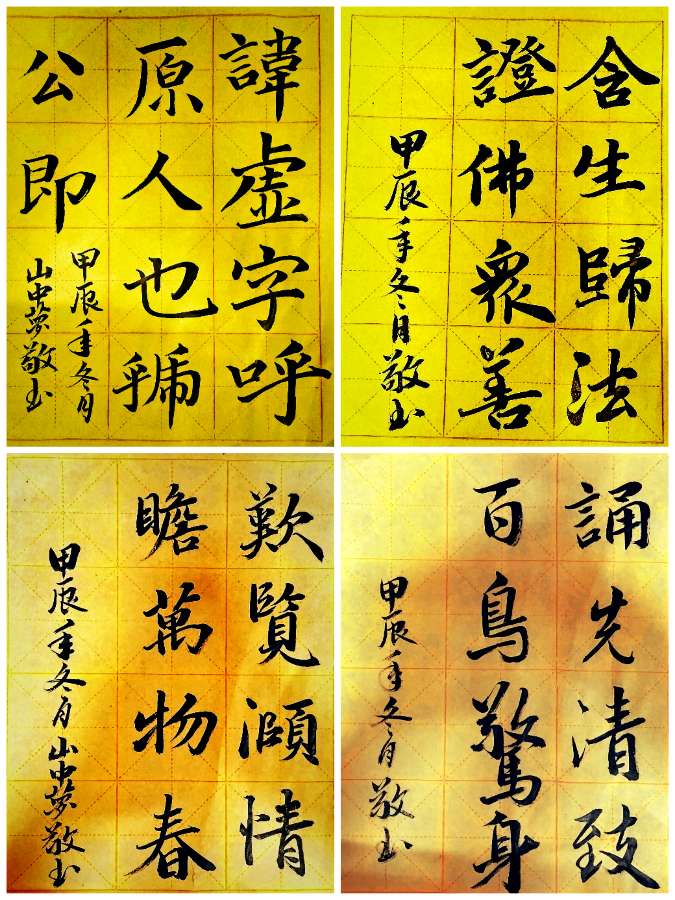 諱虛字呼
原人也號
公即
甲辰年冬月
山中夢敬书
含生歸法
證佛衆善
甲辰年冬月敬书
歎覽情
瞻萬物春
甲辰年冬月山中夢敬书
誦先清致
百鳥驚身
甲辰年冬月敬书